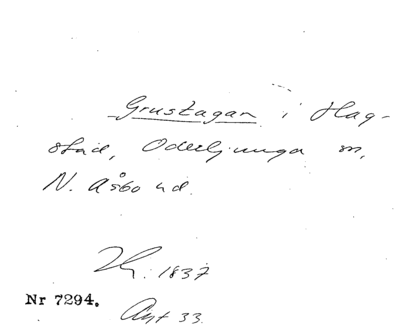 Grustagan i Hag-
stad, Oderljunga sn,
N. Åsbo hd.
Th. 1837
Nr 7294.
Ant 33.